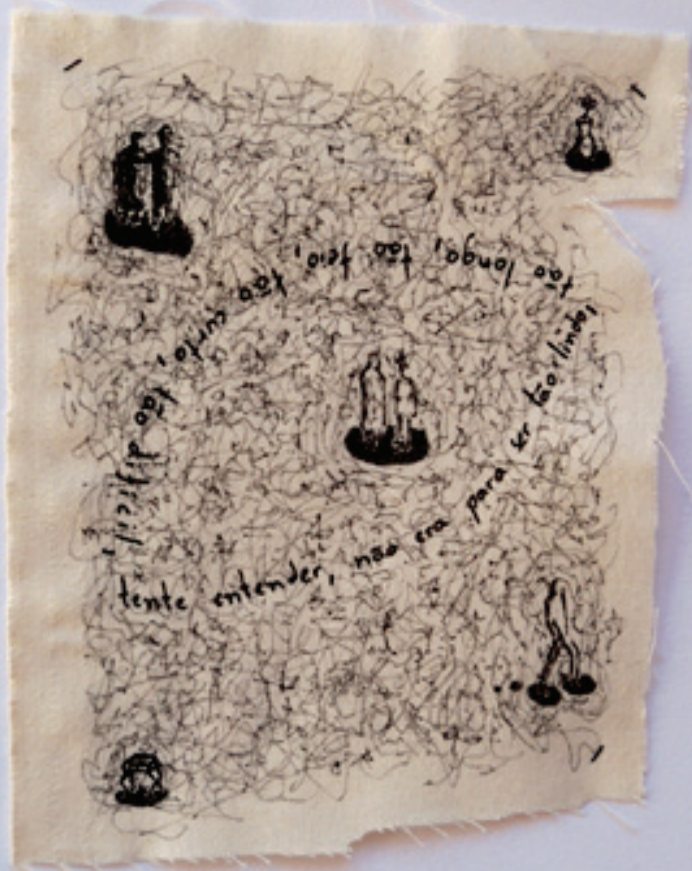 tente entender, não era para ser tão lindo,
tão longo, tão feio, tão curto, tão difícil,